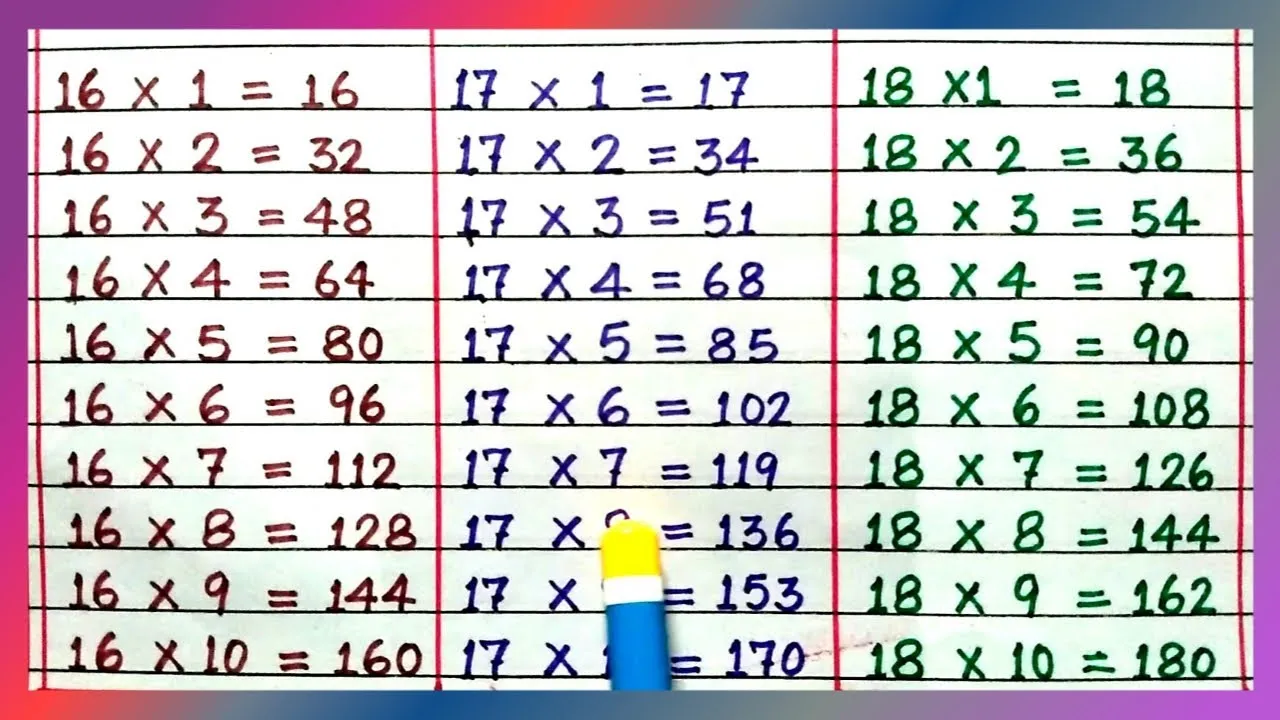 16 × 1 = 16
16 × 2 = 32
16 × 3 = 48
16 × 4 = 64
16 × 5 = 80
16 × 6 = 96
16 × 7 = 112
16 × 8 = 128
16 × 9 = 144
16 × 10 = 160
17 × 1 = 17
17 × 2 = 34
17 × 3 = 51
17 × 4 = 68
17 × 5 = 85
17 × 6 = 102
17 × 7 = 119
17 × = 136
17 × = 153
17 × = 170
18 ×1 = 18
18 × 2 = 36
18 × 3 = 54
18 × 4 = 72
18 × 5 = 90
18 × 6 = 108
18 × 7 = 126
18 × 8 = 144
18 × 9 = 162
18 × 10 = 180